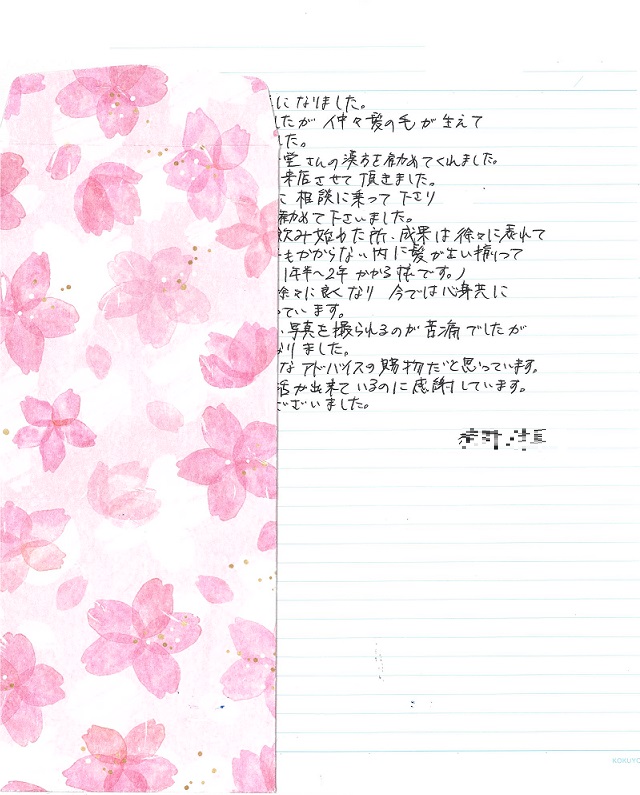 になりました。
たが 仲々髪の毛が生えて
た。
堂さんの漢方を勧めてくれました。
来店させて頂きました。
に 相談に乗って下さり
勧めて下さいました。
飲み始めた所、成果は徐々に表れて
もかからない内に髪が生い揃って
1年半〜2年かかる様です。)
徐々に良くなり 今では心身共に
っています。
い写真を撮られるのが苦痛でしたが
なりました。
なアドバイスの賜物だと思っています。
活が出来ているのに感謝しています。
ございました。
KOKUYO